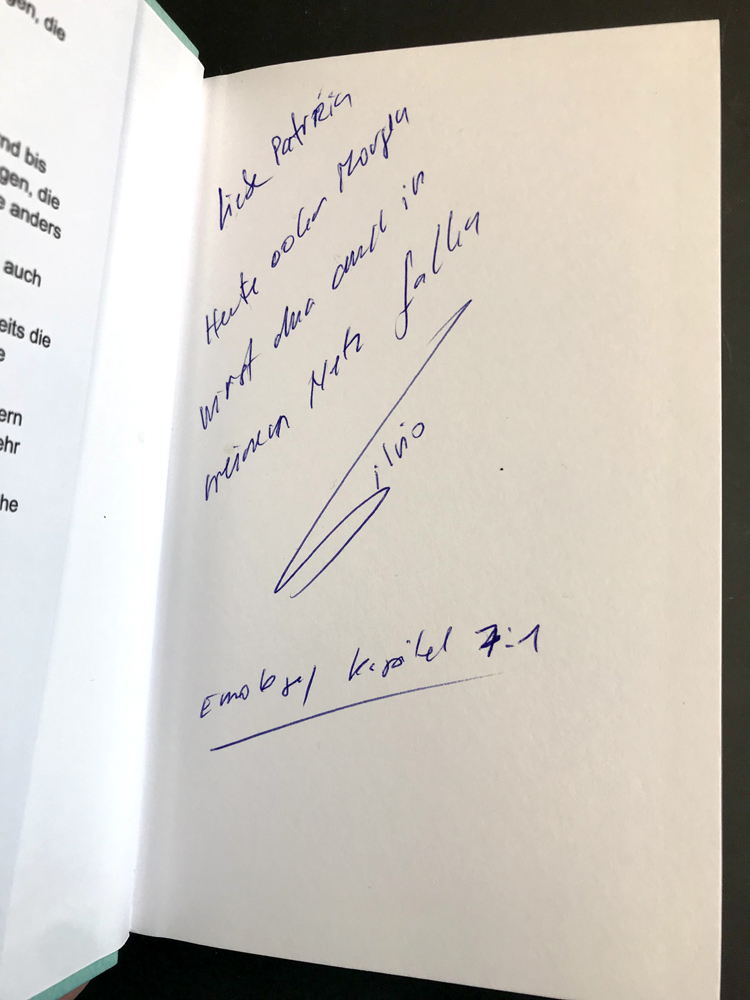 gen, die
nd bis
gen, die
e anders
auch
eits die
e
ern
ehr
he
Liebe Patrizia
Heute oder Morgen
wirst du auch in
meinem Netz fallen
Silvio
Kapitel 7.1